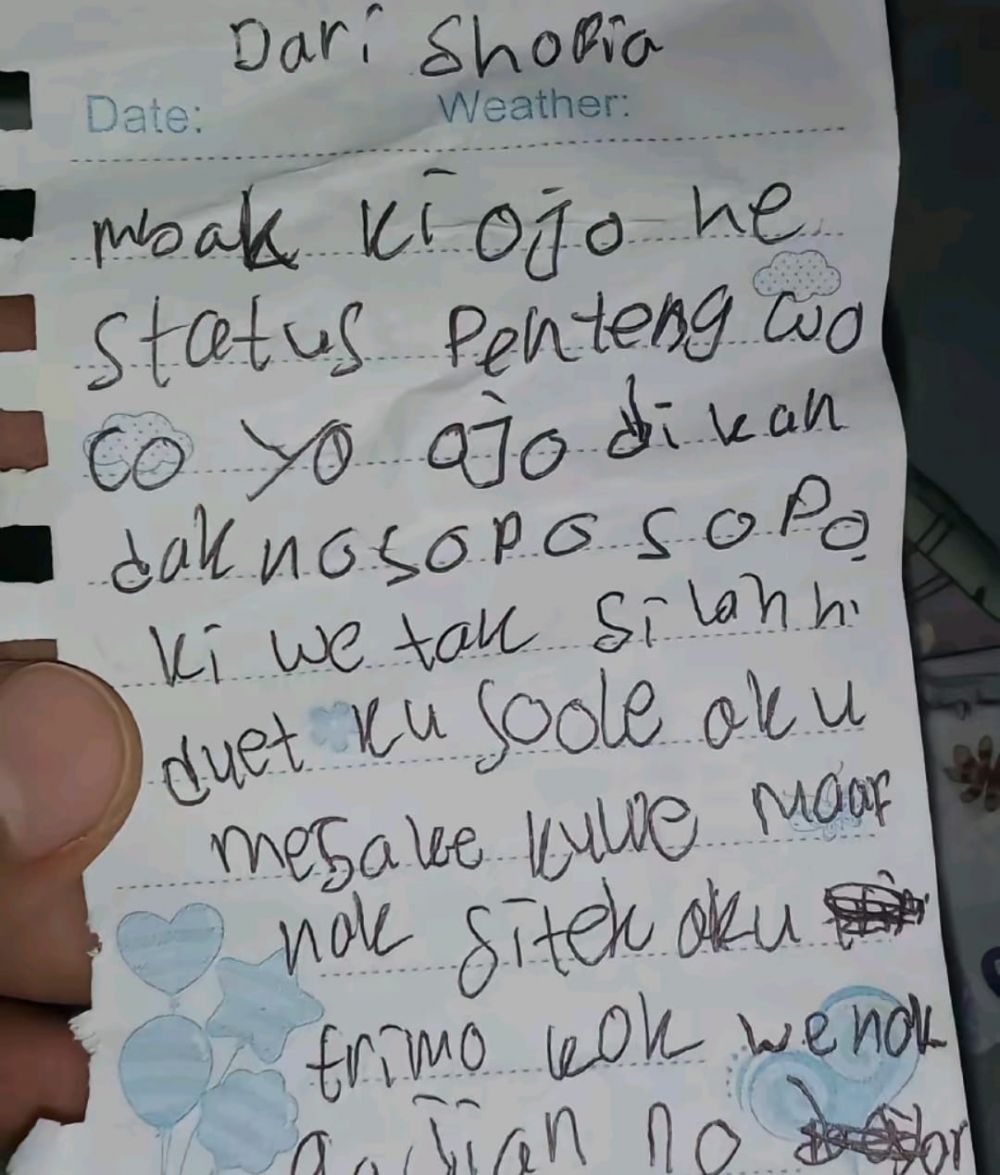 Dari Shopia
Date: Weather:
mbak ki ojo ne
status Penteng woo
co yo ojo di kan
dak no sopo sopo
ki we tak silahhi
duet ku soole aku
mesake kuwe maaf
nak sitek aku
trimo kok we nak
gajian no